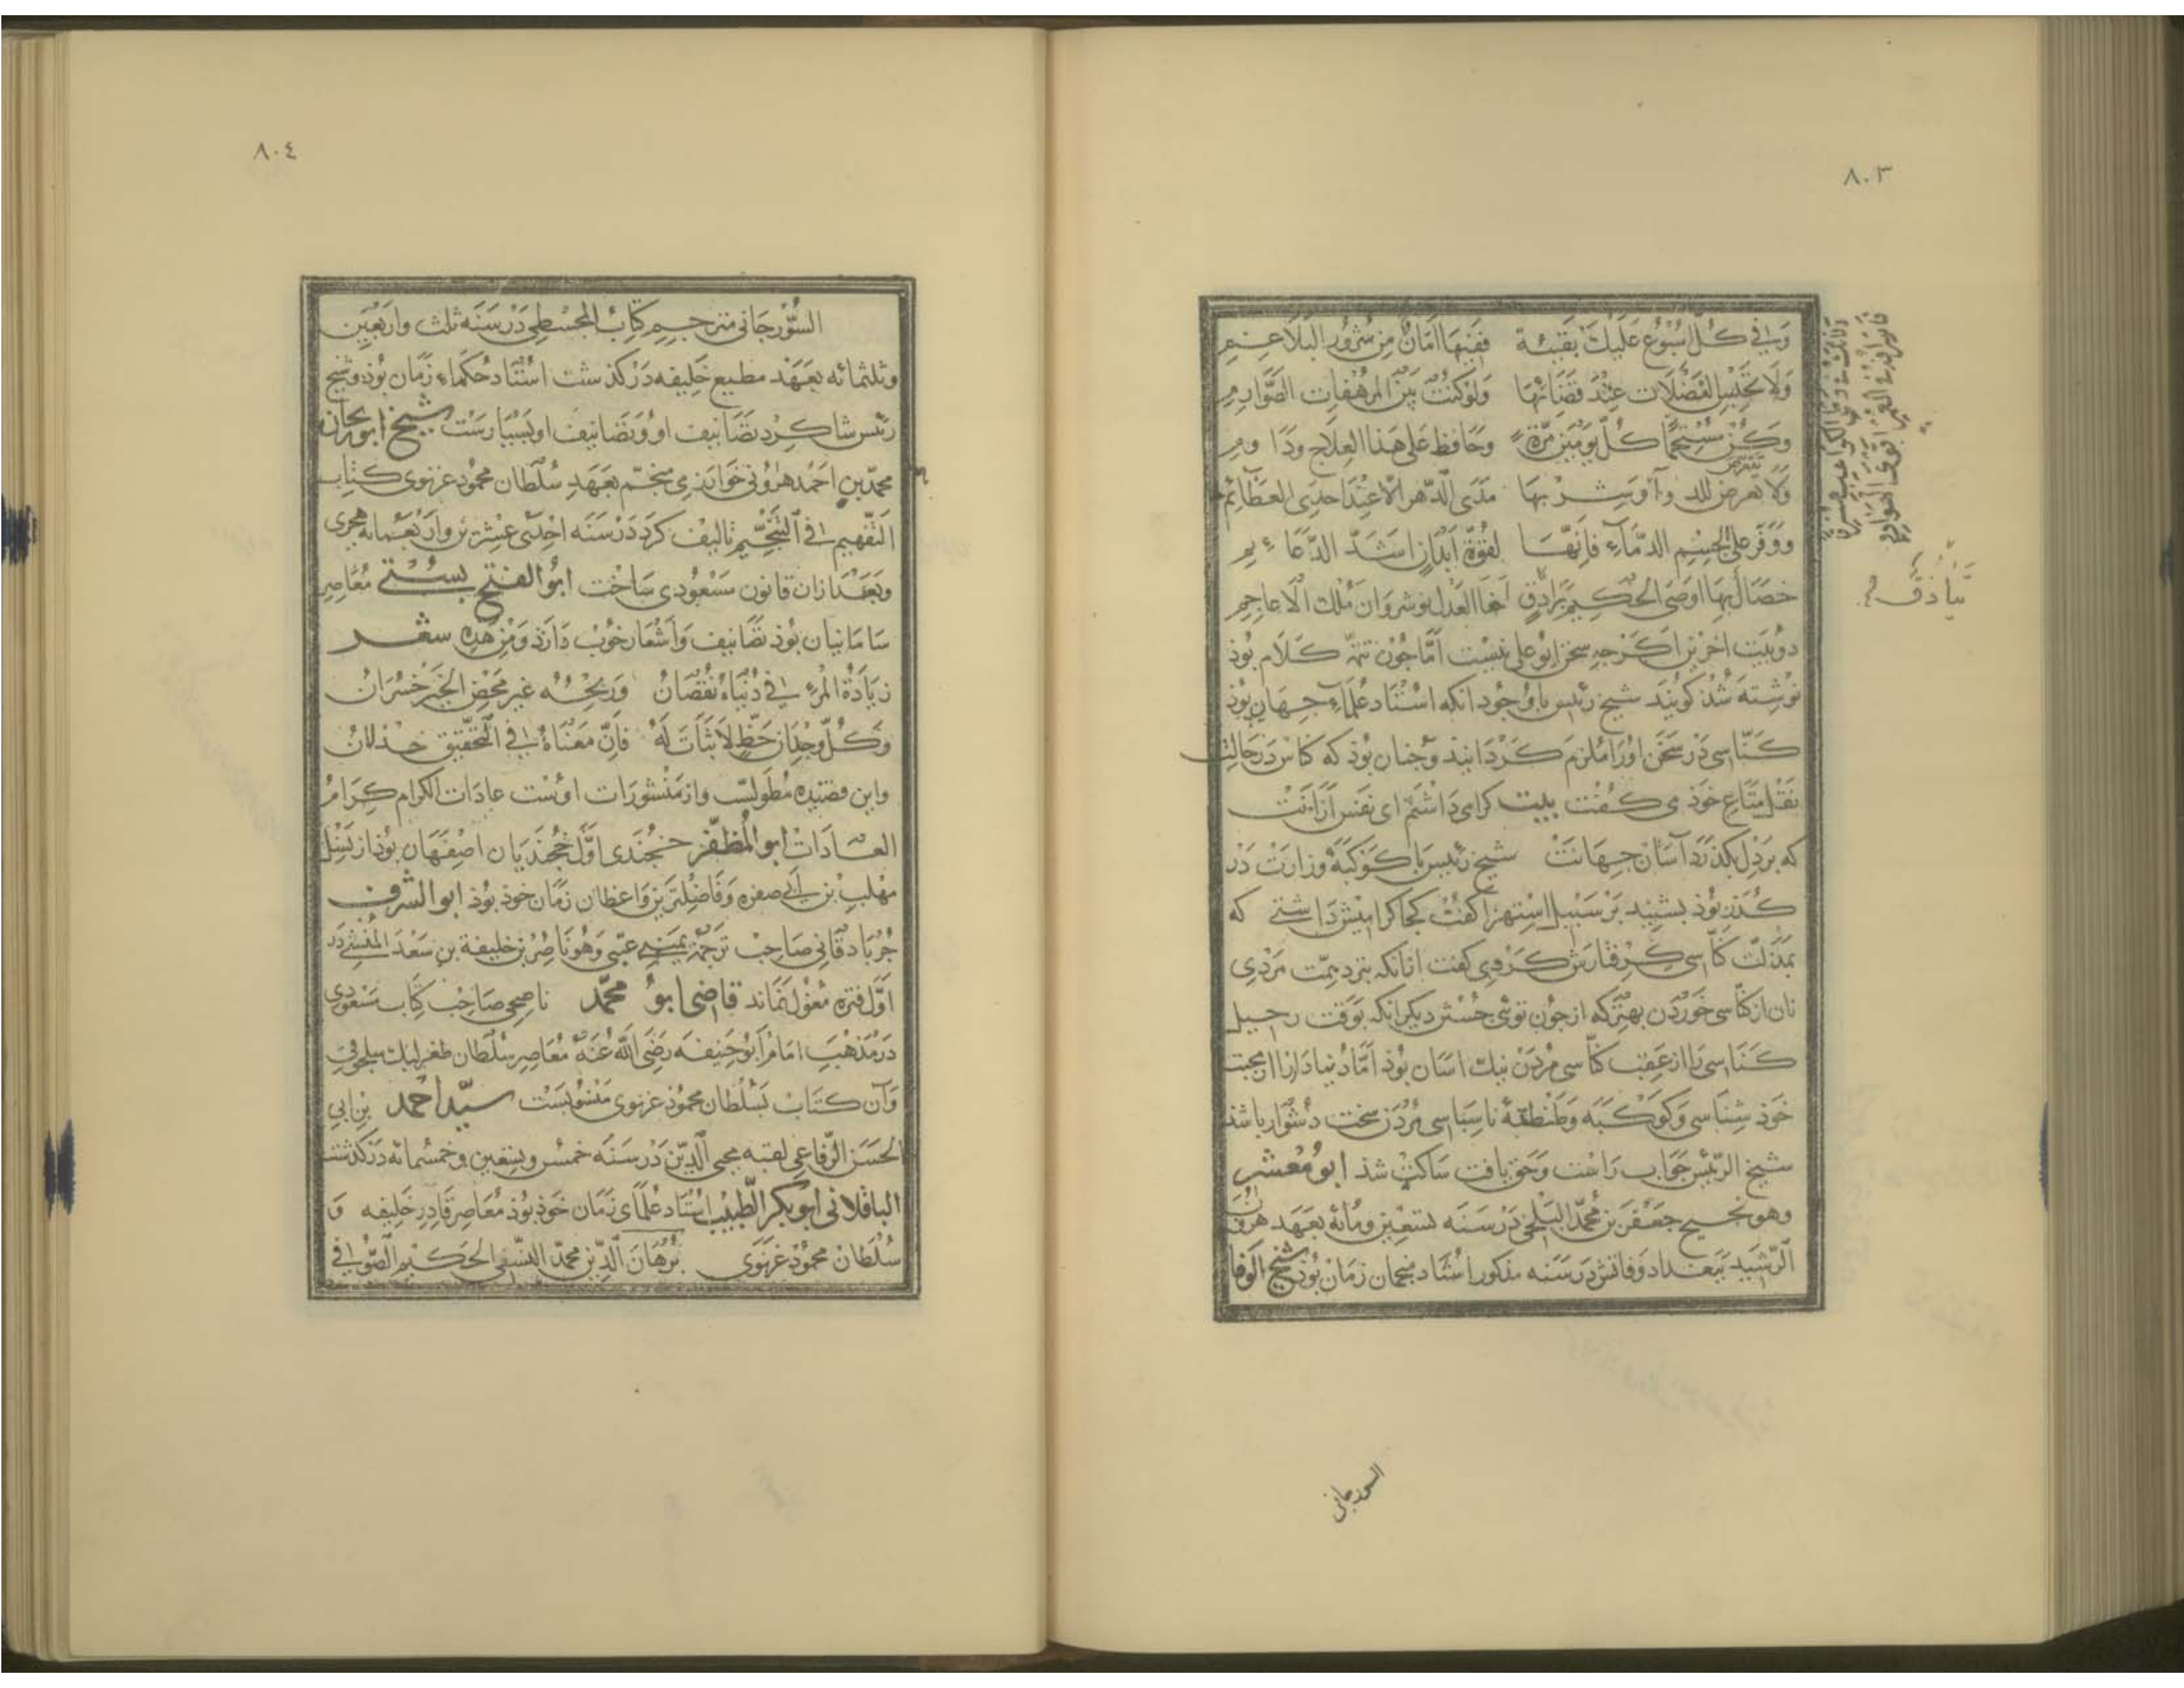 ٨٠٣
وَفي كُلّ اُسْبُوعٍ عَلَيْكَ بِقَيْئَة فَفِيهَا اَمَانٌ مِن شُرُورِ البَلَاغِمِ
وَلَا تَحْبِسِ الفَضَلَات عِنْدَ قَضَائِهَا وَلَوْ كُنْتَ بَيْنَ المُرْهَفَاتِ الصَّوَارِمِ
وَكُنْ مُسْتَحِمًّا كُلَّ يَوْمَيْنِ مَرَّةً وَحَافِظ عَلى هَذَا العِلَاجِ وَدَاوِمِ
وَلَا تتعرض للدوآ وَشربهَا مَدَى الدَّهر اِلّا عِنْدَ احدَى العَظَائِمِ
وَوَفّر عَلى الجِسْمِ الدِّمَآءِ فَاِنَّهَا لقُوّة اَبْدَانٍ اَشَدّ الدَّعَائِمِ
خِصَالٌ بِهَا اَوصَى الحَكيم تَيَاذق اَخَا العَدْل نوشروان مَلْك الاَعَاجِمِ
دو بَيت اخرين اكَرجه سخن ابُو على نيست امّا جُون تتمّه كَلَام بُوذ
نوشته شُذ كويَند شيخ رئيس با وُجُود انكه اسْتَاد عُلَمَآءِ جهَان بُوذ
كَنّاسى دَر سَخَن اورا مُلزم كَردَانيد وَ جنان بُوذ كه كنّاس دَر حَالت
نَقْل مَتَاع خَوذ مى كُفْت بيت كرامى دَاشتم اى نفس ازانت
كه بَر دِل بكذَرَد آسَان جهَانت شيخ رئيس با كَوكَبَهٔ وزارَت دَر
كُذَر بُوذ بشنيد بَر سَبيل اسْتِهزا كفت كجا كراميش دَاشتى كه
بمذلّت كنّاسى كرفتارش كَردى كفت انانكه بنزد همّت مردى
نان از كنّاسى خوردَن بهتر كه از جُون توئى جُستن ديكر انكه بوَقت رحيل
كَنّاسى را از عَقب كنّاسى مُردن نيك اسَان بُوذ امّا دُنيا دَار را از محبّت
خَوذ شِناسى وَ كوكَبَه وَ طَنطنهٔ ناسپاسى مُردن سَخت دشوار باشذ
شيخ الرّئيس جَوَاب رَاست وَ حَق يافت سَاكت شذ ابُو مَعْشر
وهو جَعْفَر بن مُحمّد البَلخى دَر سَنَه تسعين ومائة بعَهد هرون
الرّشيد ببَغداد وَفاتش دَر سَنَه مذكور اسْتَاد منجمان زمَان بُوذ شيخ الوَفا
تَيَاذق
السورجانى
٨٠٤
السُّورجَانى مترجم كتاب المجسطى دَر سَنَه ثلث وَاربَعين
وثلثمائه بعَهْد مطيع خَليفه دَر كذشت استَاد حُكمَاءِ زمَان بُوذ وَ شيخ
رئيس شاكرد تصَانيف او وَ تصَانيف او بسيارست شيخ ابو ريحان
محمّد بن احمَد هرونى خوارزمى منجّم بعَهد سُلطان محمُود غزنوى كتاب
التّفهيم فى التّنجيم تاليف كرد دَر سَنَه احدى عشرين وَاربعمائه هجرى
وَبَعْد ازان قانون مسعُودى سَاخت ابُو الفتح بستى مُعَاصر
سَامَانيان بُوذ تصَانيف وَاشعَار خُوب دَارَذ وَمن هذه شعر
زيَادَةُ المَرْءِ فى دُنْيَاه نُقْصَانُ وَربْحُهُ غَير مَحْض الخَير خُسْرَانُ
وَكُلّ وِجْدَان حَظٍّ لَا ثَبَات لَهُ فَاِنّ مَعْنَاهُ فى التّحقيق خذلَانُ
واين قصيده مُطوّلست واز منشورات اوست عادَات الكرام كرَام
العَادَات ابو المظفّر خجندى اوّل خُجنديان اصفهان بُوذ از نسل
مهلّب بن ابى صفره وَ فَاضلترين وَاعظان زمَان خود بُوذ ابو الشرف
جُرباذقانى صَاحب ترجمهٔ يمينى عتبى وَهُو نَاصر بن خليفة بن سَعد المنشى دَر
اوّل فتره مغول نماند قاضى ابو محمّد ناصحى صَاحب كتاب مسعُودى
دَر مَذهب امَام ابو حَنيفه رَضى اللّه عَنْه مُعَاصر سُلطان طغرلبك سلجوقى
وَآن كتاب بسُلطان محمُود غزنوى منسُوبست سيّد احمد بن ابى
الحسَن الرّفاعى لقبه محيى الدّين دَر سَنَه خمس وسبعين وخمسمائة دَر كذشت
الباقلانى ابو بكر الطّيب اسْتَاد عُلمَاى زمَان خَوذ بُوذ مُعَاصر قَادر خليفه وَ
سُلطان محمُود غزنوى بُرهَان الدّين محمّد النسفى الحكيم الصّوفى